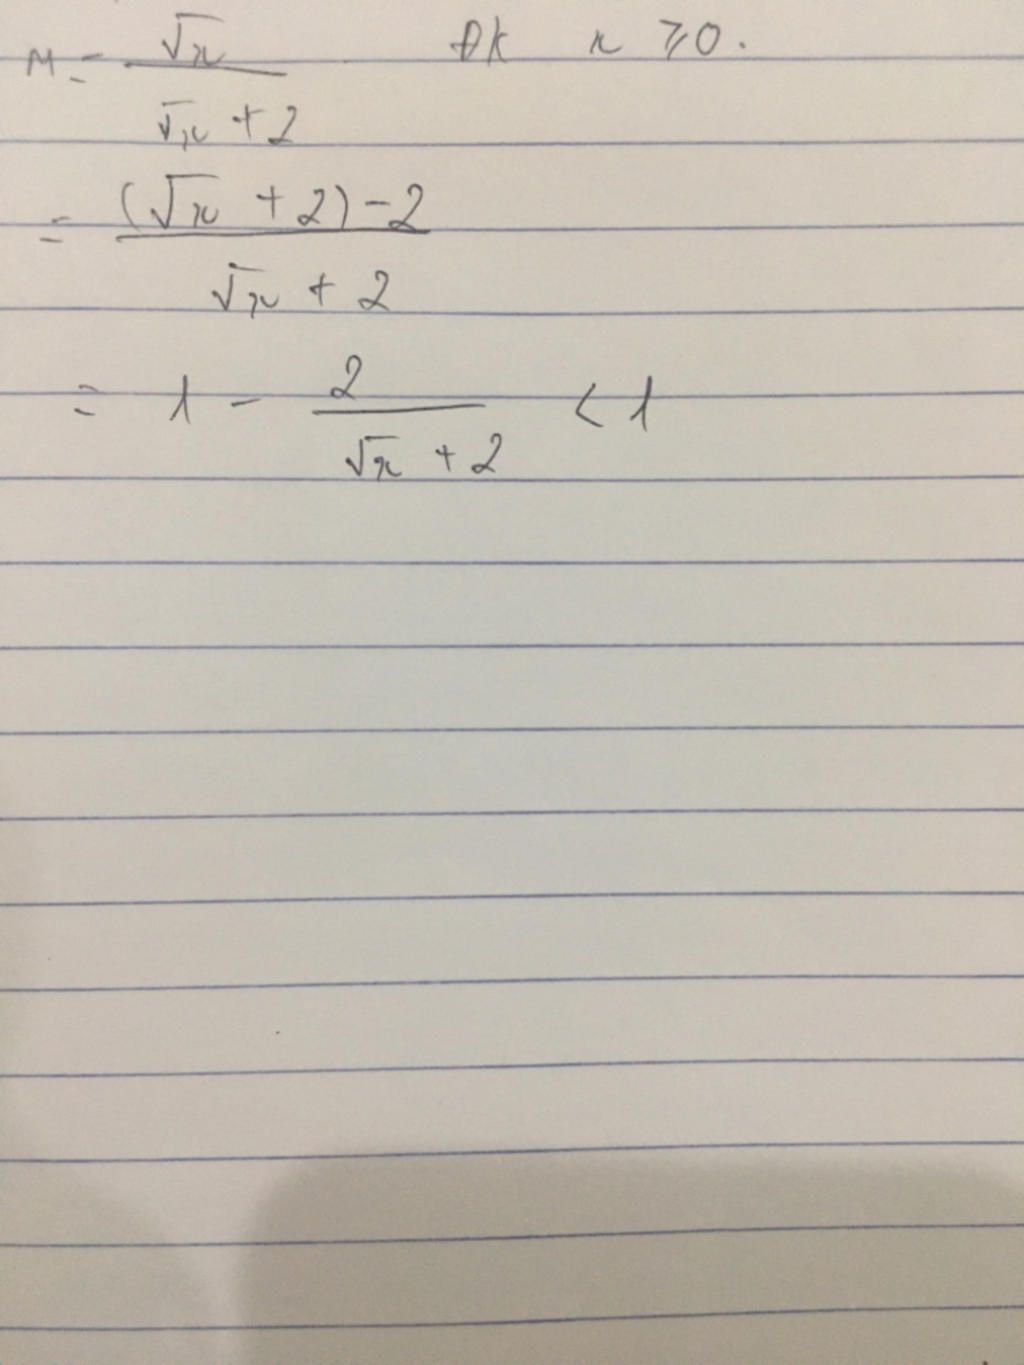 M = √x / (√x + 2) ĐK x ≥ 0.
= ((√x + 2) - 2) / (√x + 2)
= 1 - 2 / (√x + 2) < 1